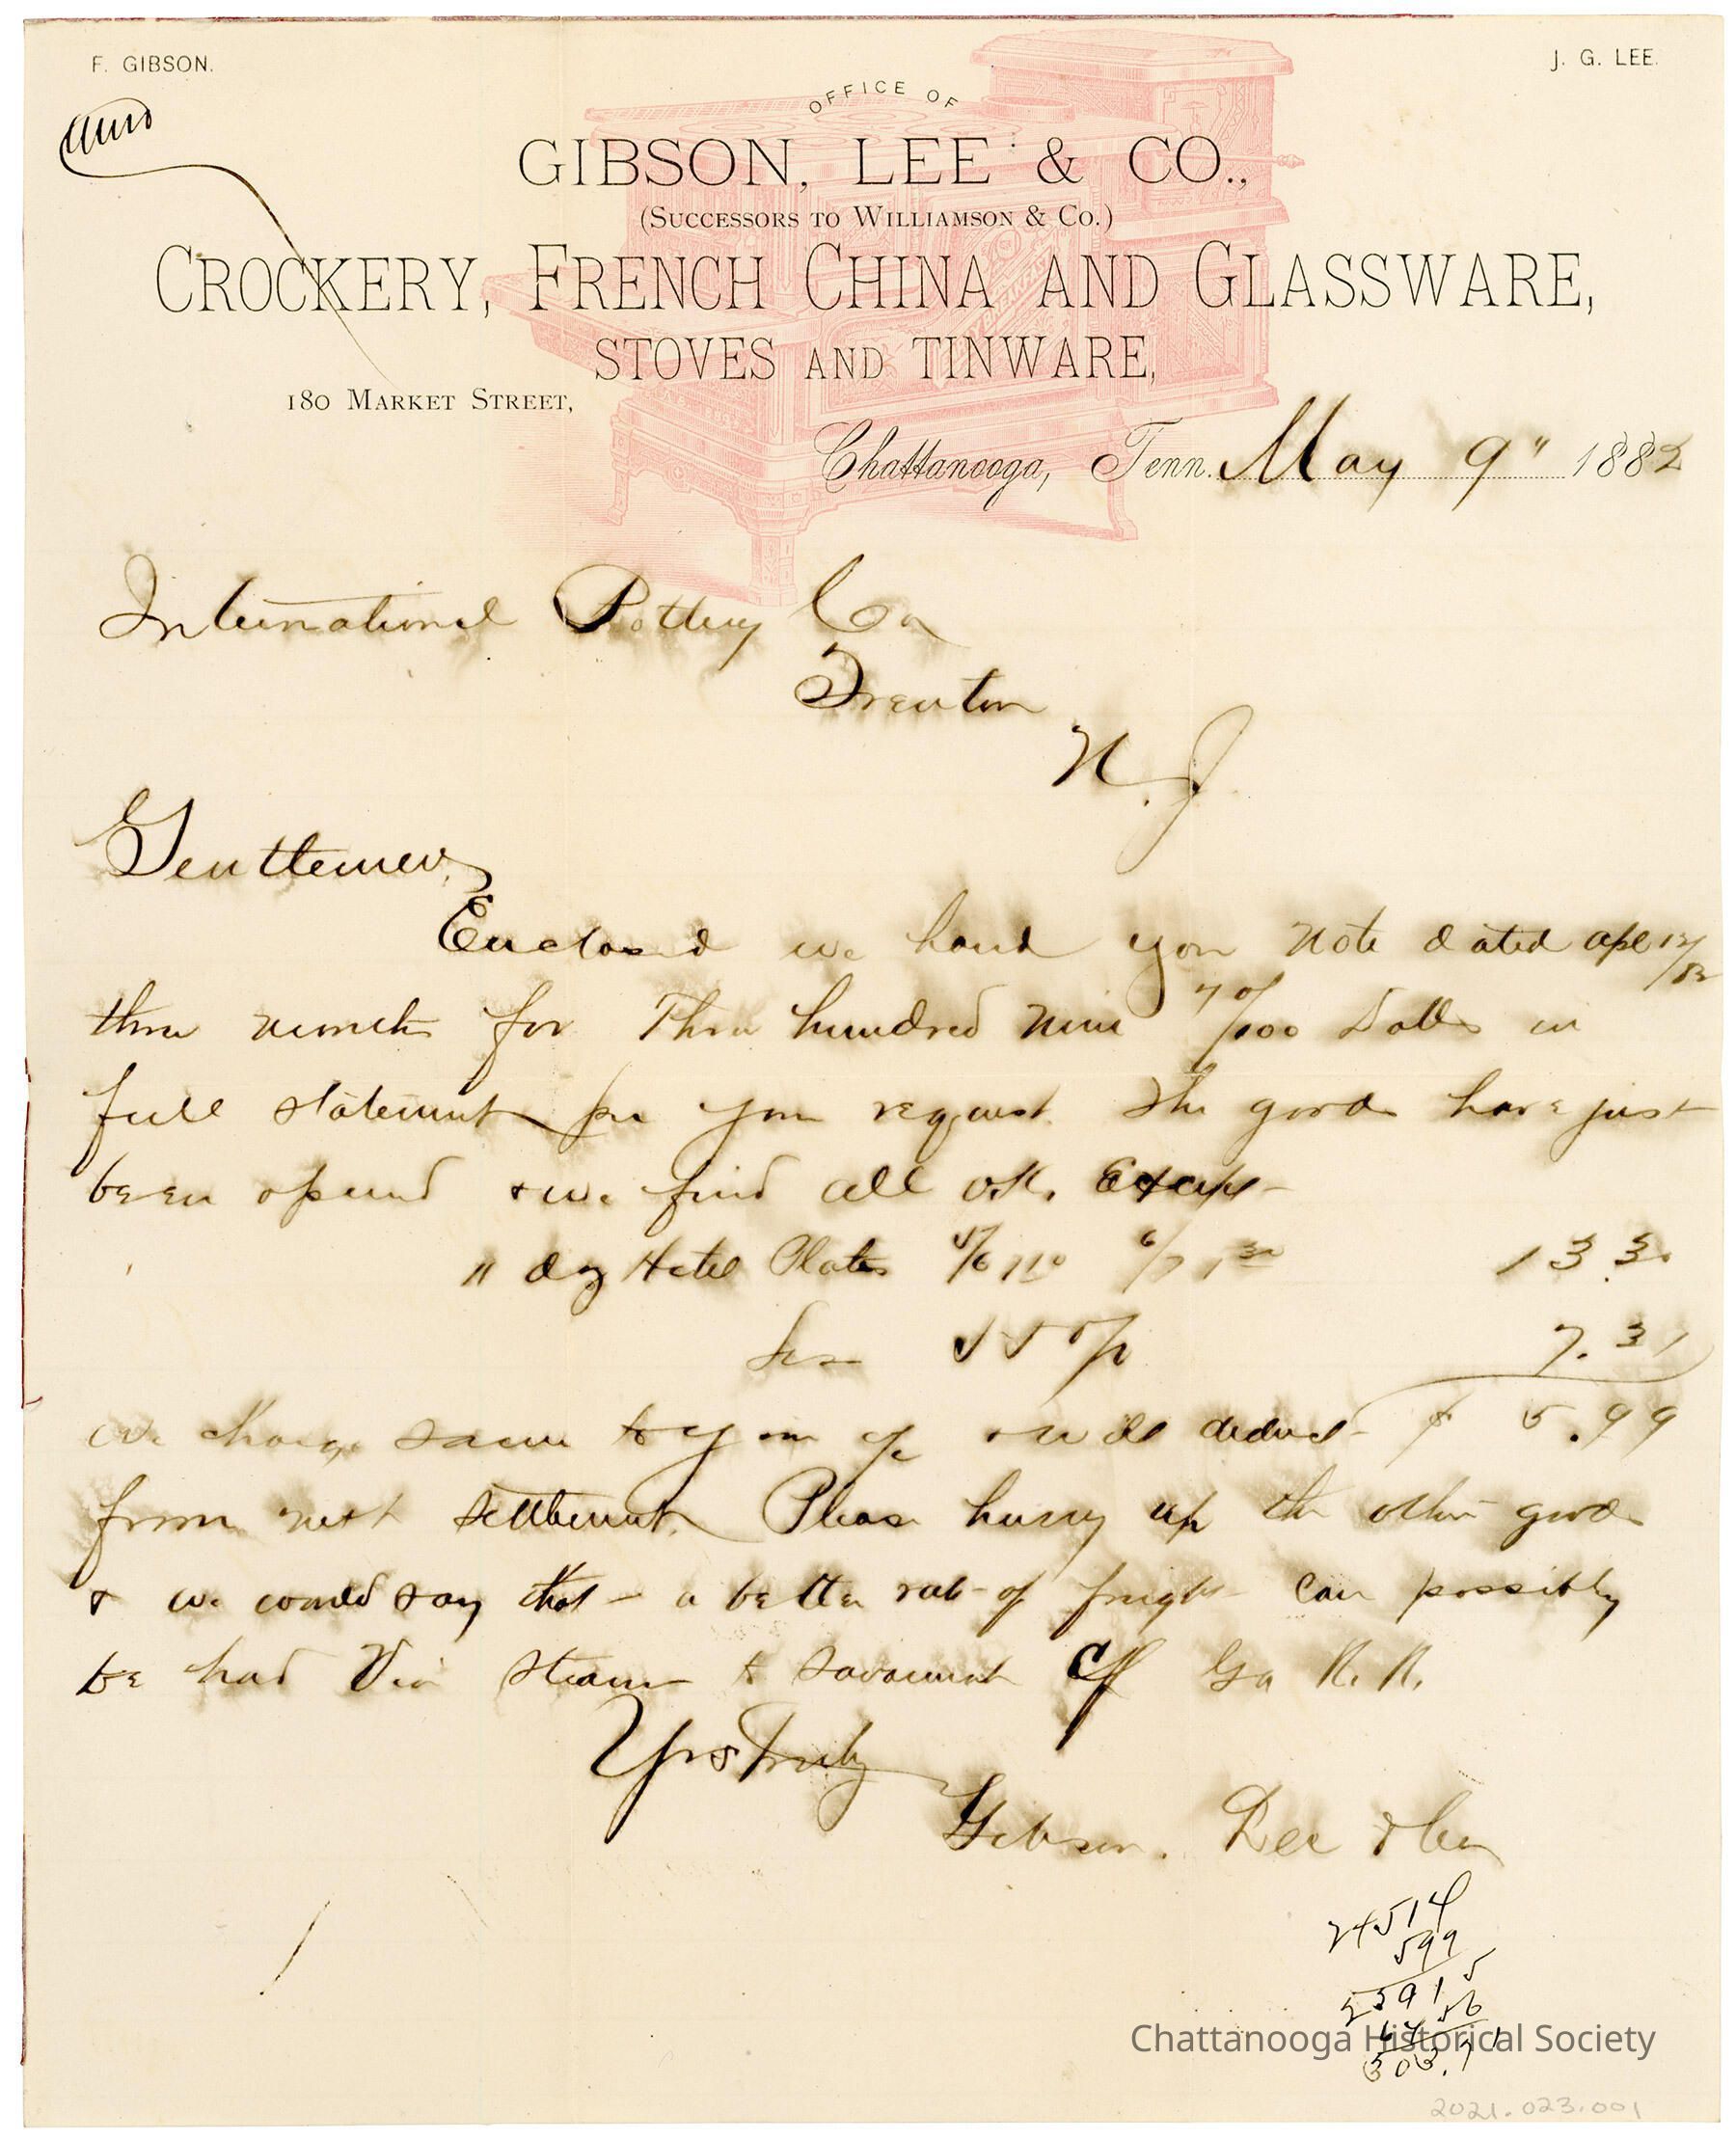 F. GIBSON.
J. G. LEE.
Ansd
OFFICE OF
GIBSON, LEE & CO.,
(SUCCESSORS TO WILLIAMSON & CO.)
CROCKERY, FRENCH CHINA AND GLASSWARE,
STOVES AND TINWARE,
180 MARKET STREET,
Chattanooga, Tenn. May 9" 1882
International Pottery Co
Trenton
N. J.
Gentlemen,
Enclosed we hand you note dated apl 12/82
three months for Three hundred nine 70/100 Dolls in
full statement per your request. The goods have just
been opened & we find all O.K. Except
11 dz Hotel Plates
Less 55 %
7.31
we charge same to your % & will deduct $ 5.99
from next settlement. Please hurry up the other goods
& we would say that a better rate of freight can possibly
be had Via Steamer to Savannah C of Ga R. R.
Yrs Truly
Gibson, Lee & Co
24514
599
303.71
Chattanooga Historical Society
2021.023.001